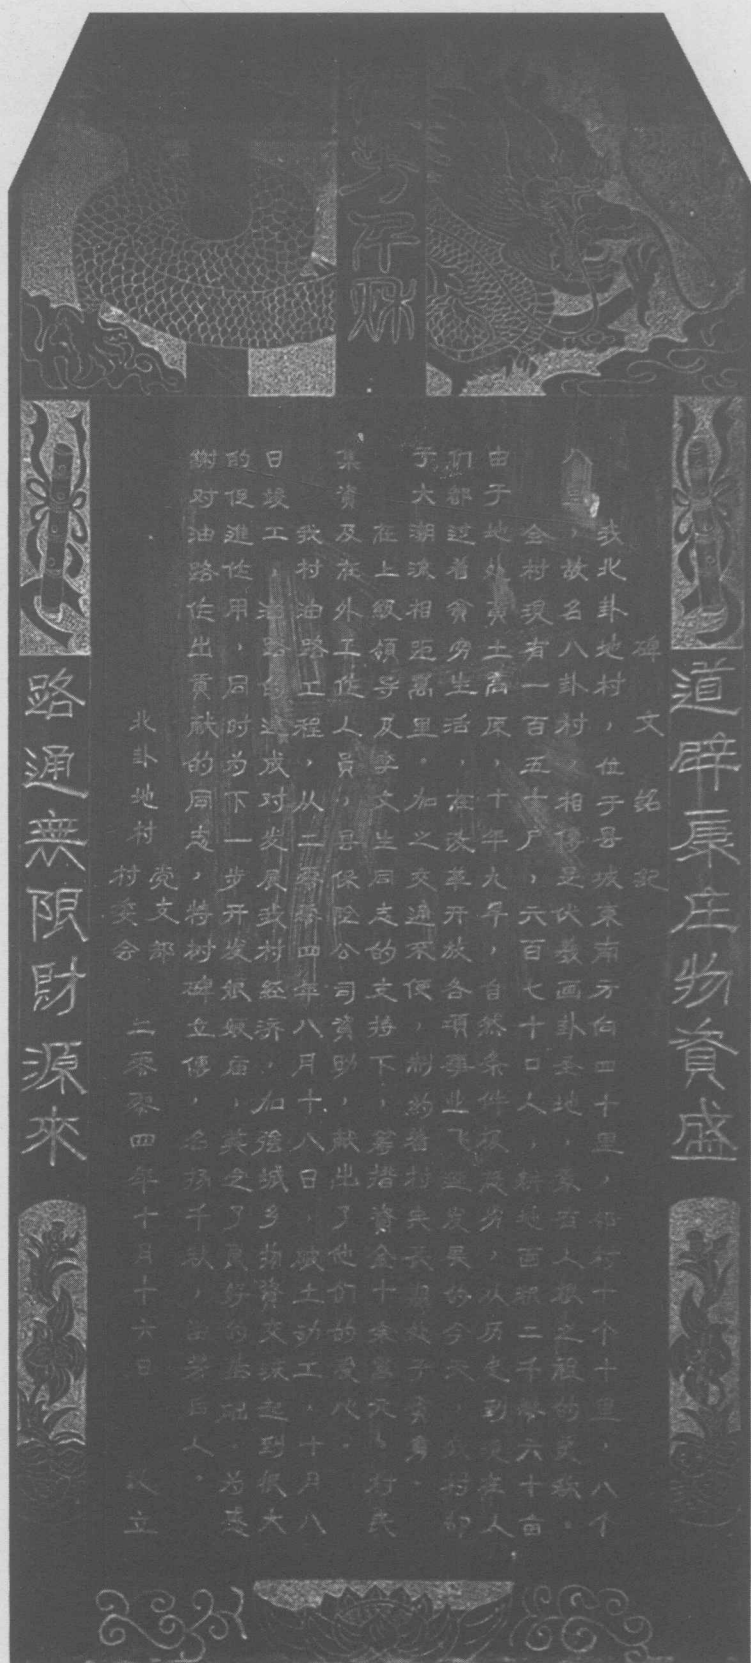 芳千秋
道辟康庄物資盛
碑文銘記
我北卦地村，位于县城東南方向四十里，邻村十个十里，八个
八里，故名八卦村，相傳是伏羲画卦圣地，素有人根之祖的美称。
全村現有一百五十户，六百七十口人，耕地面积二千零六十亩
由于地处黄土高原，十年九旱，自然条件很差，从历史到現在人
们都过着貧穷生活，在改革开放各項事业飞速发展的今天，我村却
于大潮流相距萬里。加之交通不便，制約着村民長期处于貧穷。
在上級領导及李文生同志的支持下，筹措資金十余萬元，村民
集資及在外工作人員，县保险公司資助，献出了他们的爱心。
我村油路工程，从二零零四年八月十八日，破土动工，十月八
日竣工，油路的造成对发展我村经济，加强城乡物資交流起到很大
的促進作用，同时为下一步开发娘娘庙，奠定了良好的基础。为感
謝对油路作出貢献的同志，特树碑立傳，名扬千秋，流芳百人。
北卦地村 党支部 村委会 二零零四年十月十六日 立
路通無限財源來